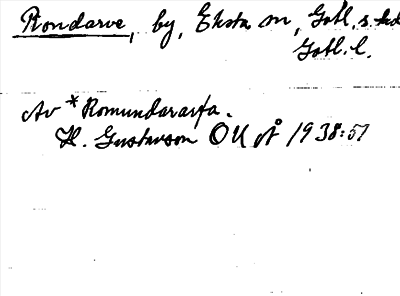 Rondarve, by, Eksta sn, Gotl. s. hd
Gotl. l.
Av *Romundararfa.
H. Gustavson OUÅ 1938:57